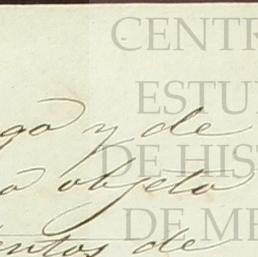 CENTR
ESTU
DE HIST
DE ME
go y de
objeto
entos de